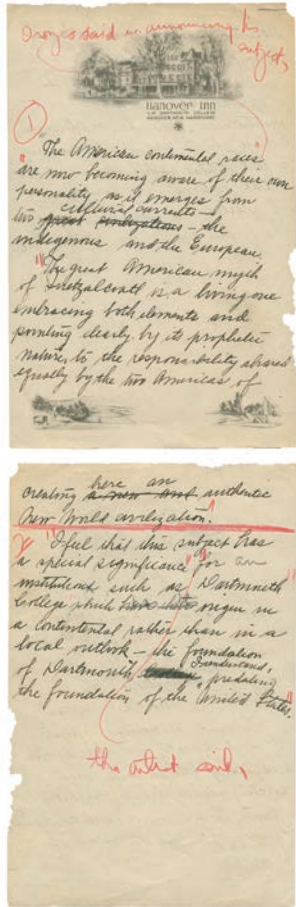 Orozco said in announcing his
subject,
1
Hanover Inn
AT DARTMOUTH COLLEGE
HANOVER, NEW HAMPSHIRE
"The American continental races
are now becoming aware of their own
personality, as it emerges from
two cultural currents — the
indigenous and the European.
"The great American myth
of Quetzalcoatl is a living one
embracing both elements and
pointing clearly, by its prophetic
nature, to the responsibility shared
equally by the two Americas of
creating here an authentic
New World civilization."
"I feel that this subject has
a special significance for an
institution such as Dartmouth
College which has its origin in
a continental rather than in a
local outlook — the foundation
of Dartmouth, I understand,
predating
the foundation of the United States."
the artist said,